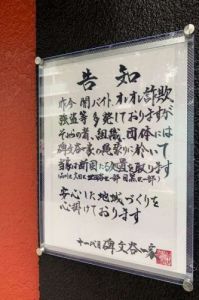 告知
昨今 闇バイト、オレオレ詐欺
強盗等 多発しておりますが
それらの者、組織、団体には
碑文谷一家の縄張りに於いて
当家は断固たる処置を取ります
安心した地域づくりを
心掛けております
十一代目 碑文谷一家